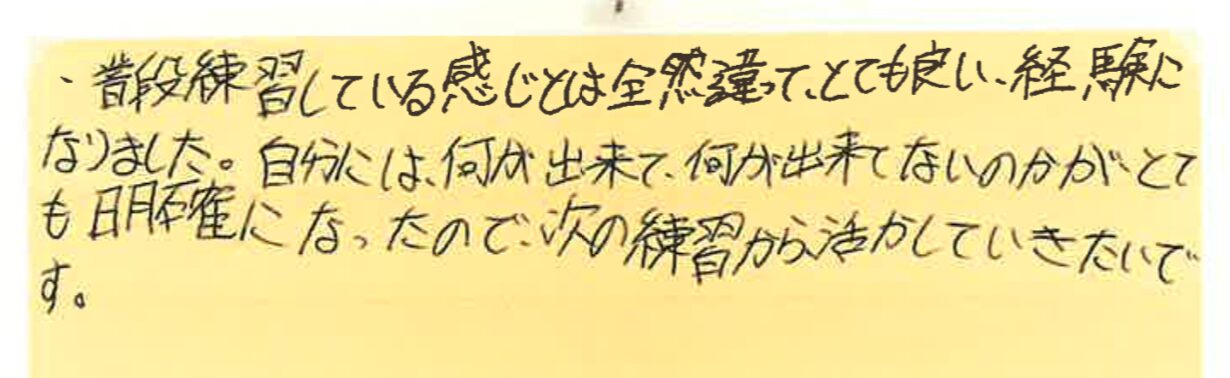 ・普段練習している感じとは全然違って、とても良い、経験に
なりました。自分には、何が出来て、何が出来てないのかが、とて
も明確になったので、次の練習から活かしていきたいで
す。